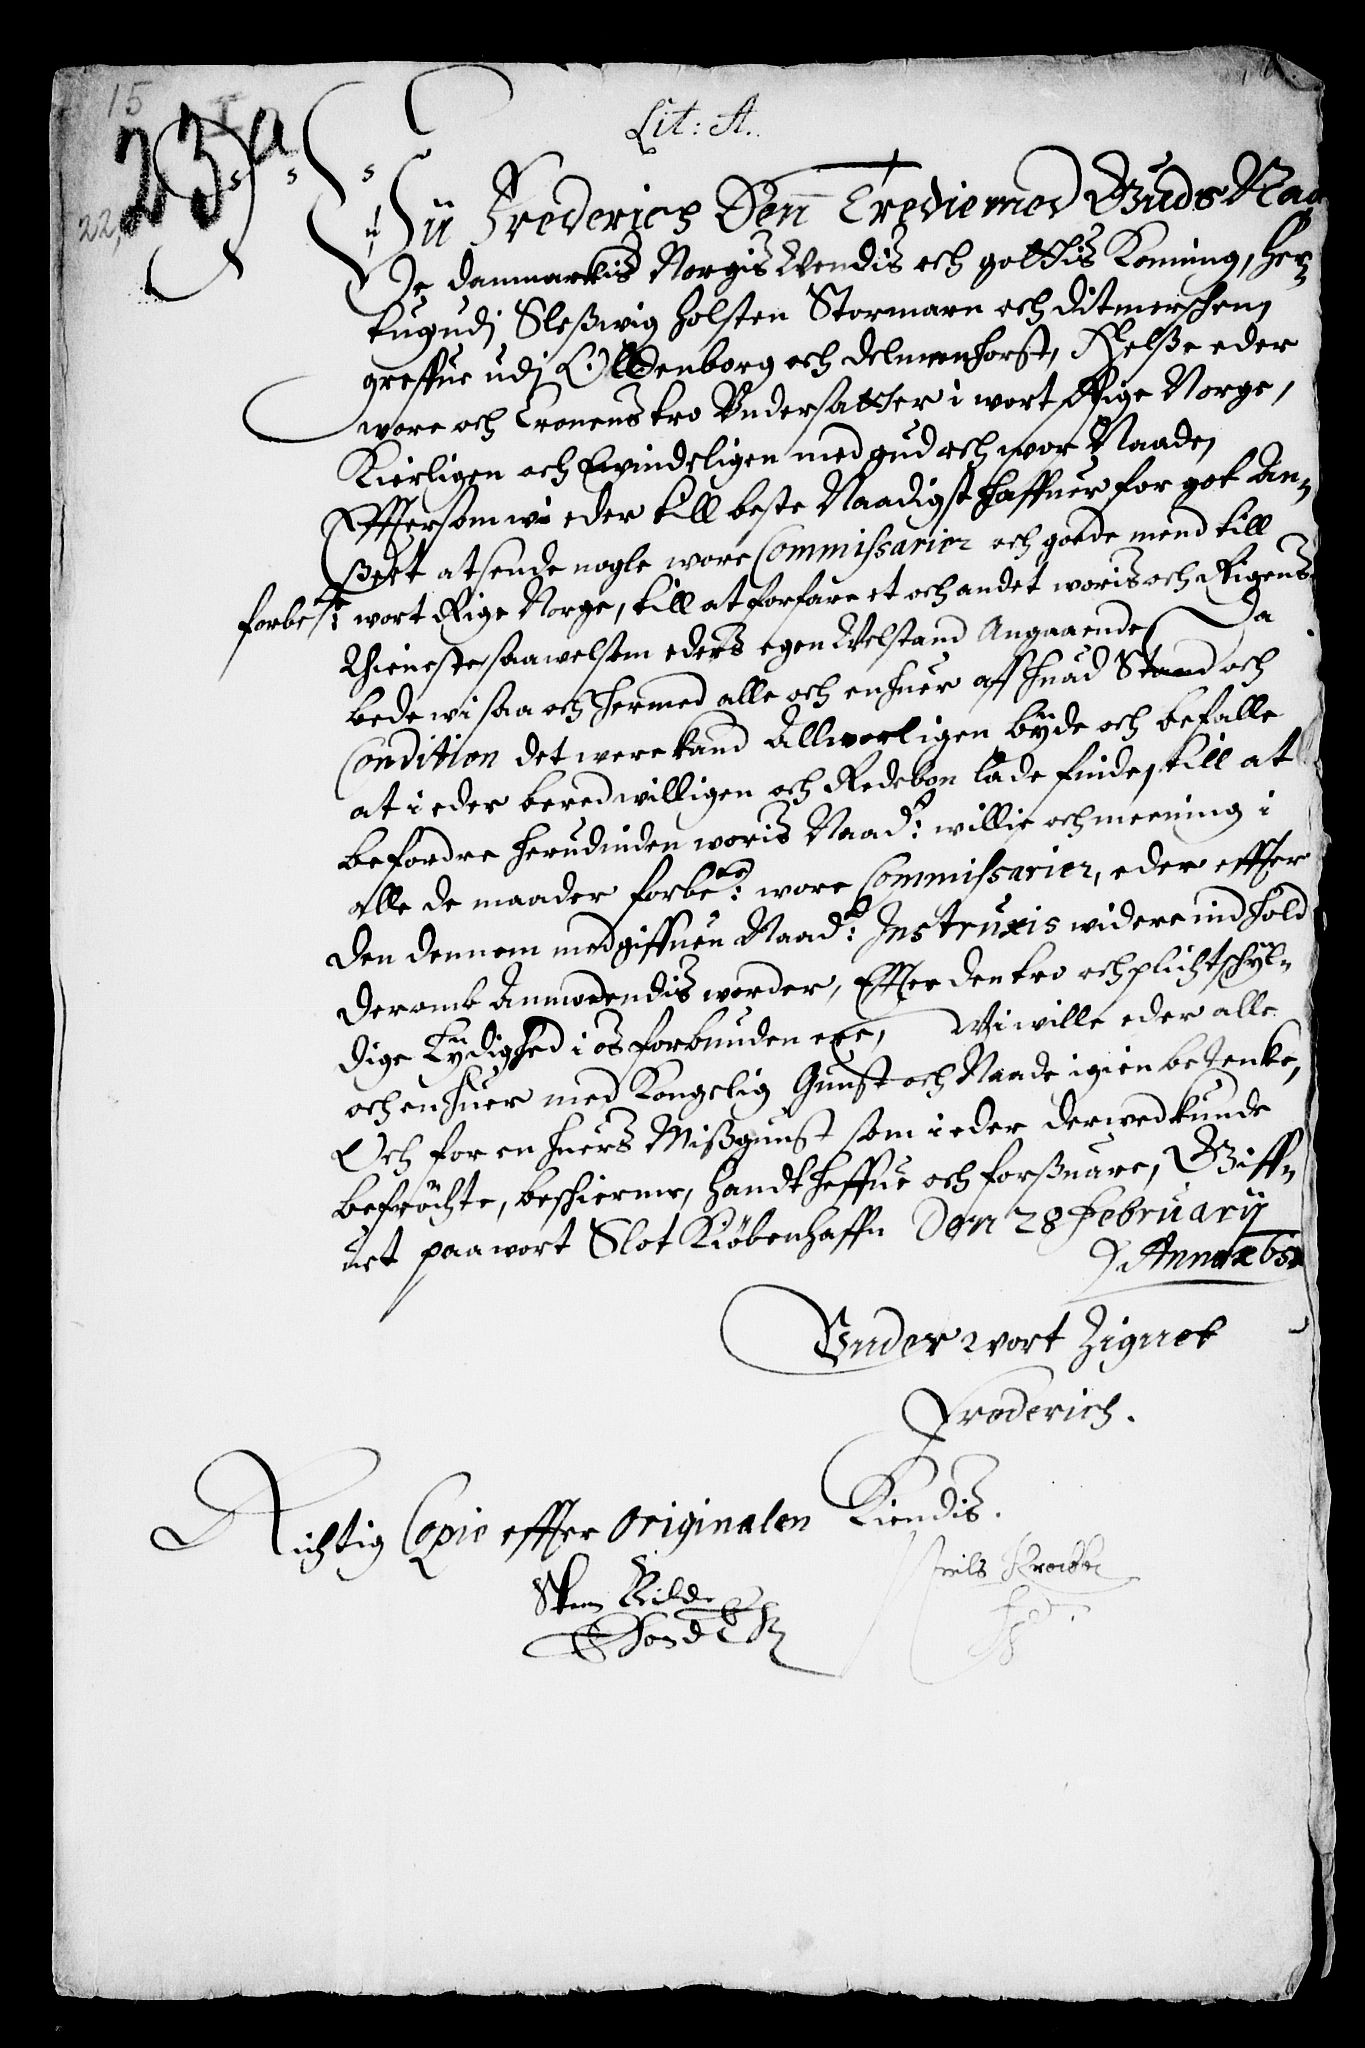 15
23 a
22,
Lit: A.
Wii Frederich Den Tredie med Guds Naa
De Danmarckis Norgis Wendis och gottis Konning, her-
tug udj Sleßwig Holsten Stormarn och Ditmerschen,
greffue udj Olldenborg och Delmenhorst, Helße eder
wore och Cronens tro Undersatter i wort Rige Norge,
Kierligen och Ewindeligen med gud och wor Naade,
Effter som wi eder till beste Naadigst haffuer for got An-
ßeet at sende nogle wore Commissarier och goede mend till
forbete: wort Rige Norge, till at forfare et och andet woris och Rigens
Thieneste, saa welsom eders egen Welstand Angaaende, Da
bede wi saa och hermed alle och en huer aff huad Stand och
Condition det were kand Allworligen byde och befalle
at i eder beredwilligen och Redebon lade finde, till at
befordre herudinden woris Naad: willie och meening i
alle de maader forbete: wore Commissarier, eder effter
den dennem medgiffuen Naad: Instruxis widere indhold
deromb Anmodendis worder, Effter den tro och plichtschyl-
dige Lydighed i os forbunden ere, Wi wille eder alle
och en huer med Kongelig Gunst och Naade igien betencke,
Och for en huers Mißgunst som i eder derwed kunde
befrychte, beschierme, handtheffue och forßuare, Giff-
uet paa wort Slot Kiøbenhaffn Den 28 February
Anno 165
Under wort Zignet
Frederich.
Richtig Copie effter Originalen Kiendis.
Sten Bilde Niels Krabbe